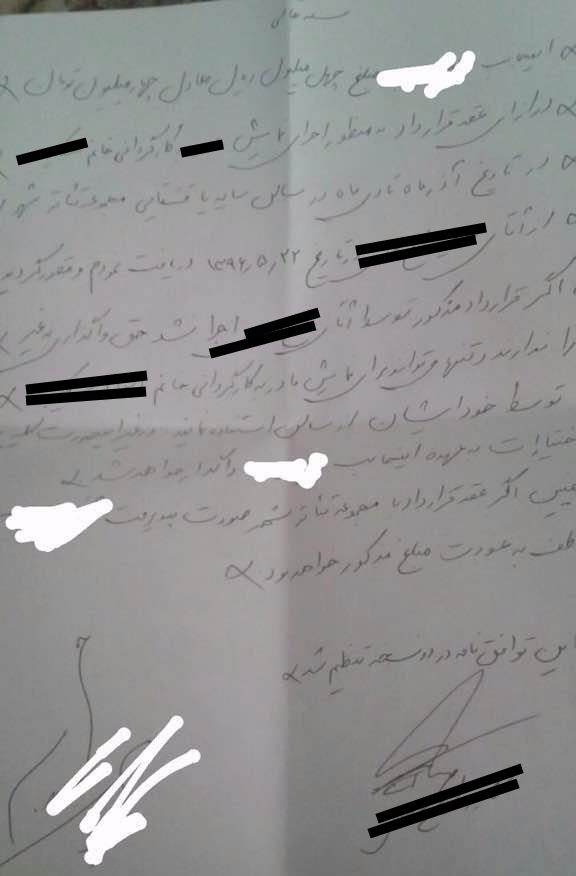 بسمه تعالی
اینجانب مبلغ چهل میلیون ریال معادل چهار میلیون تومان
در ازای عقد قرارداد به منظور اجرای نمایش کارگردانی خانم
در تاریخ آذر ماه تا دی ماه در سالن سایه یا قشقایی مجموعه تئاتر شهر
از آقای تاریخ ۱۳۹۶٫۵٫۲۲ دریافت نمودم و مقرر گردید
اگر قرارداد مذکور توسط آقای اجرا نشد حق واگذاری به غیر
را ندارند و تنها می‌توانند برای نمایش به کارگردانی خانم
توسط خود ایشان از سالن استفاده نمایند در غیر اینصورت کلیه
اختیارات به عهده اینجانب واگذار خواهد شد
اگر عقد قرارداد با مجموعه تئاتر شهر صورت نپذیرفت
به عودت مبلغ مذکور خواهد بود
این توافق نامه در دو نسخه تنظیم شد